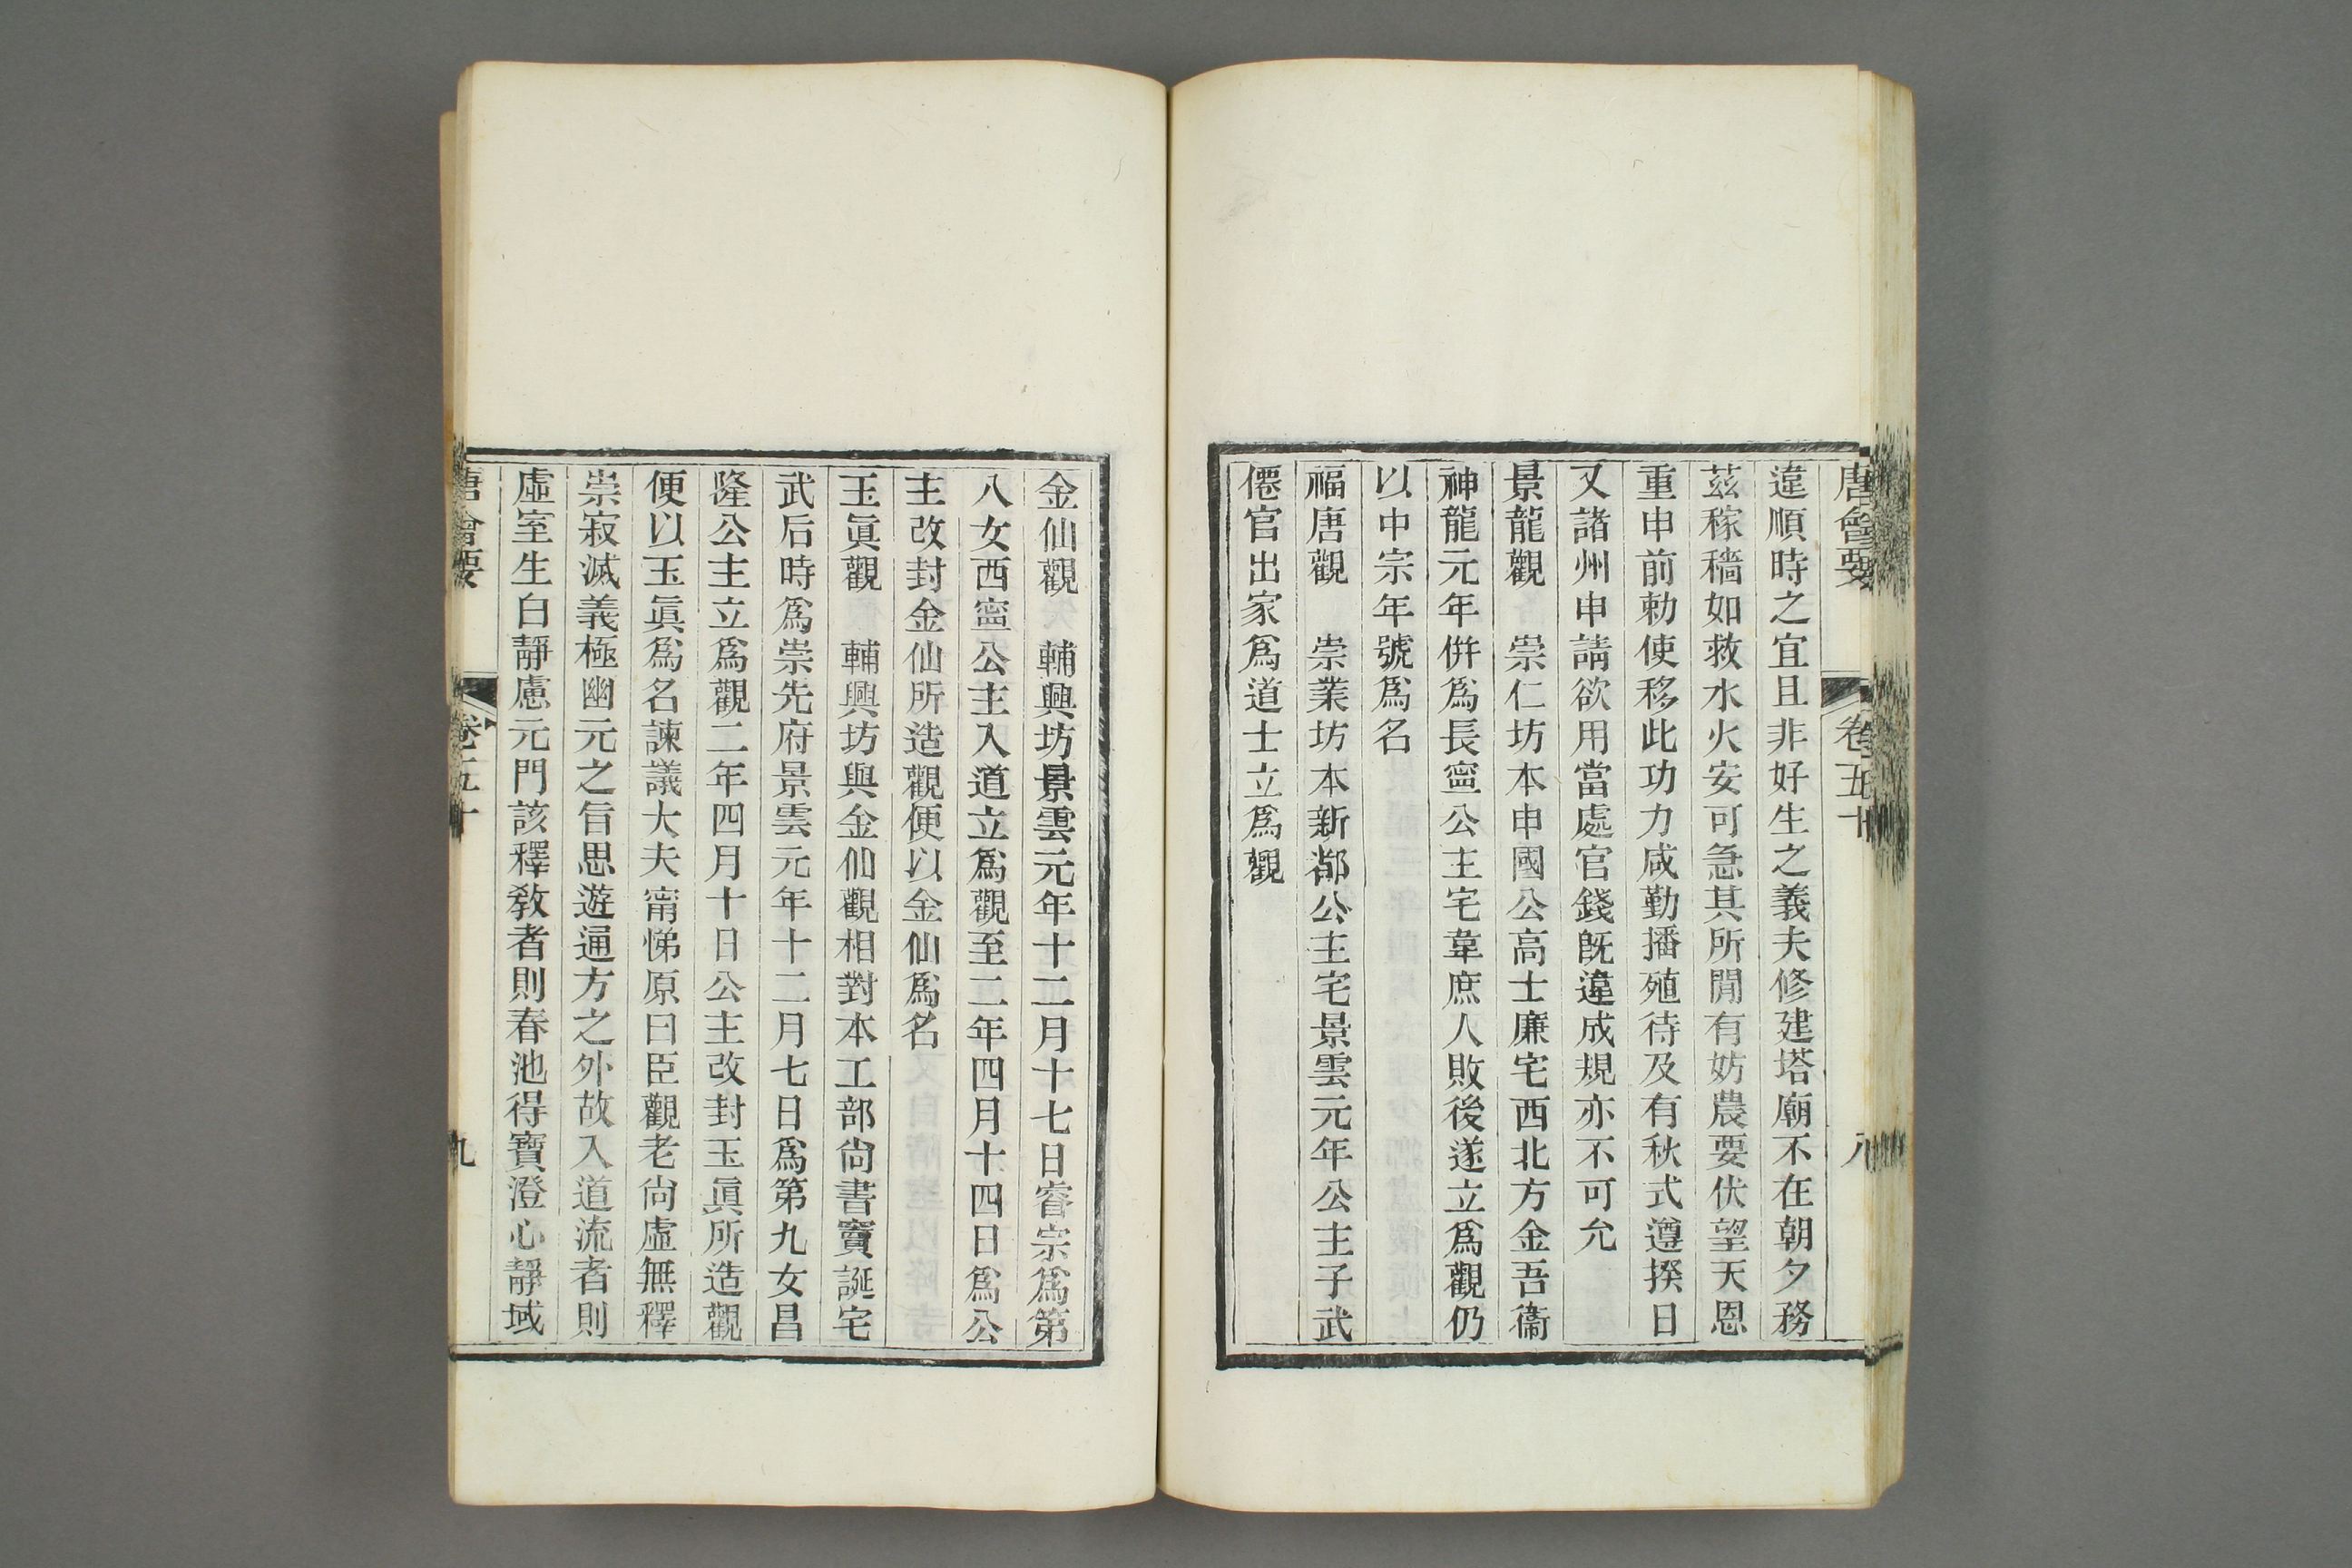 唐會要 卷五十 八
違順時之宜且非好生之義夫修建塔廟不在朝夕務
茲稼穡如救水火安可急其所閒有妨農要伏望天恩
重申前勅使移此功力咸勤播殖待及有秋式遵揆日
又諸州申請欲用當處官錢旣違成規亦不可允
景龍觀 崇仁坊本申國公高士廉宅西北方金吾衞
神龍元年倂爲長寧公主宅韋庶人敗後遂立爲觀仍
以中宗年號爲名
福唐觀 崇業坊本新都公主宅景雲元年公主子武
僊官出家爲道士立爲觀
金仙觀 輔興坊景雲元年十二月十七日睿宗爲第
八女西寧公主入道立爲觀至二年四月十四日爲公
主改封金仙所造觀便以金仙爲名
玉眞觀 輔興坊與金仙觀相對本工部尙書竇誕宅
武后時爲崇先府景雲元年十二月七日爲第九女昌
隆公主立爲觀二年四月十日公主改封玉眞所造觀
便以玉眞爲名諫議大夫甯悌原曰臣觀老尙虛無釋
崇寂滅義極幽元之旨思遊通方之外故入道流者則
虛室生白靜慮元門該釋敎者則春池得寶澄心靜域
唐會要 卷五十 九